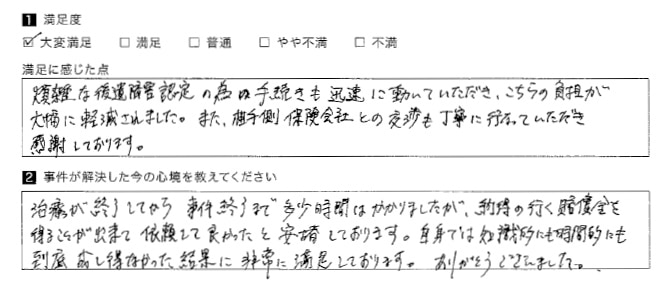 1 満足度
☑ 大変満足 □ 満足 □ 普通 □ やや不満 □ 不満
満足に感じた点
煩雑な後遺障害認定の為の手続きも迅速に動いていただき、こちらの負担が
大幅に軽減されました。また、相手側保険会社との交渉も丁寧に行なっていただき
感謝しております。
2 事件が解決した今の心境を教えてください
治療が終了してから事件終了まで多少時間はかかりましたが、納得の行く賠償金を
得ることが出来て依頼して良かったと安堵しております。自身では知識的にも時間的にも
到底成し得なかった結果に非常に満足しております。ありがとうございました。